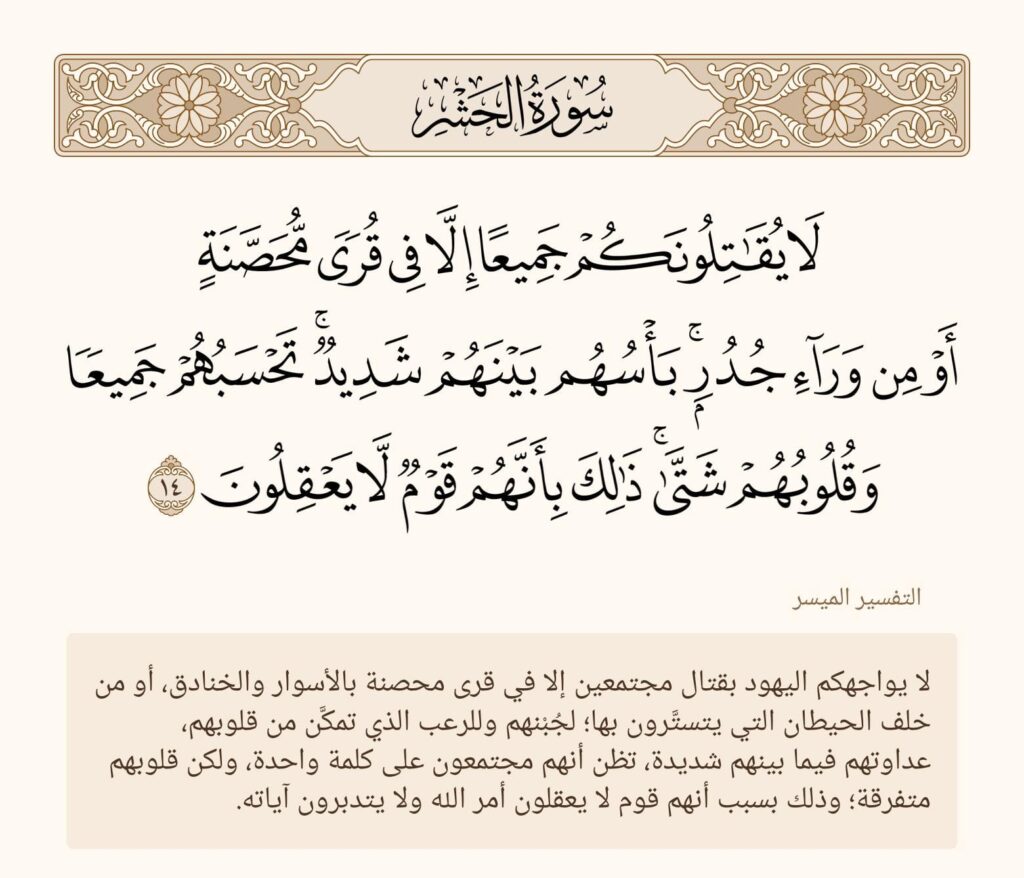 سُورَةُ الحَشْرِ
لَا يُقَـٰتِلُونَكُمْ جَمِيعًا إِلَّا فِى قُرًى مُّحَصَّنَةٍ
أَوْ مِن وَرَآءِ جُدُرٍۭ ۚ بَأْسُهُم بَيْنَهُمْ شَدِيدٌ ۚ تَحْسَبُهُمْ جَمِيعًا
وَقُلُوبُهُمْ شَتَّىٰ ۚ ذَٰلِكَ بِأَنَّهُمْ قَوْمٌ لَّا يَعْقِلُونَ ١٤
التفسير الميسر
لا يواجهكم اليهود بقتال مجتمعين إلا في قرى محصنة بالأسوار والخنادق، أو من
خلف الحيطان التي يتستَّرون بها؛ لجُبْنهم وللرعب الذي تمكَّن من قلوبهم،
عداوتهم فيما بينهم شديدة، تظن أنهم مجتمعون على كلمة واحدة، ولكن قلوبهم
متفرقة؛ وذلك بسبب أنهم قوم لا يعقلون أمر الله ولا يتدبرون آياته.